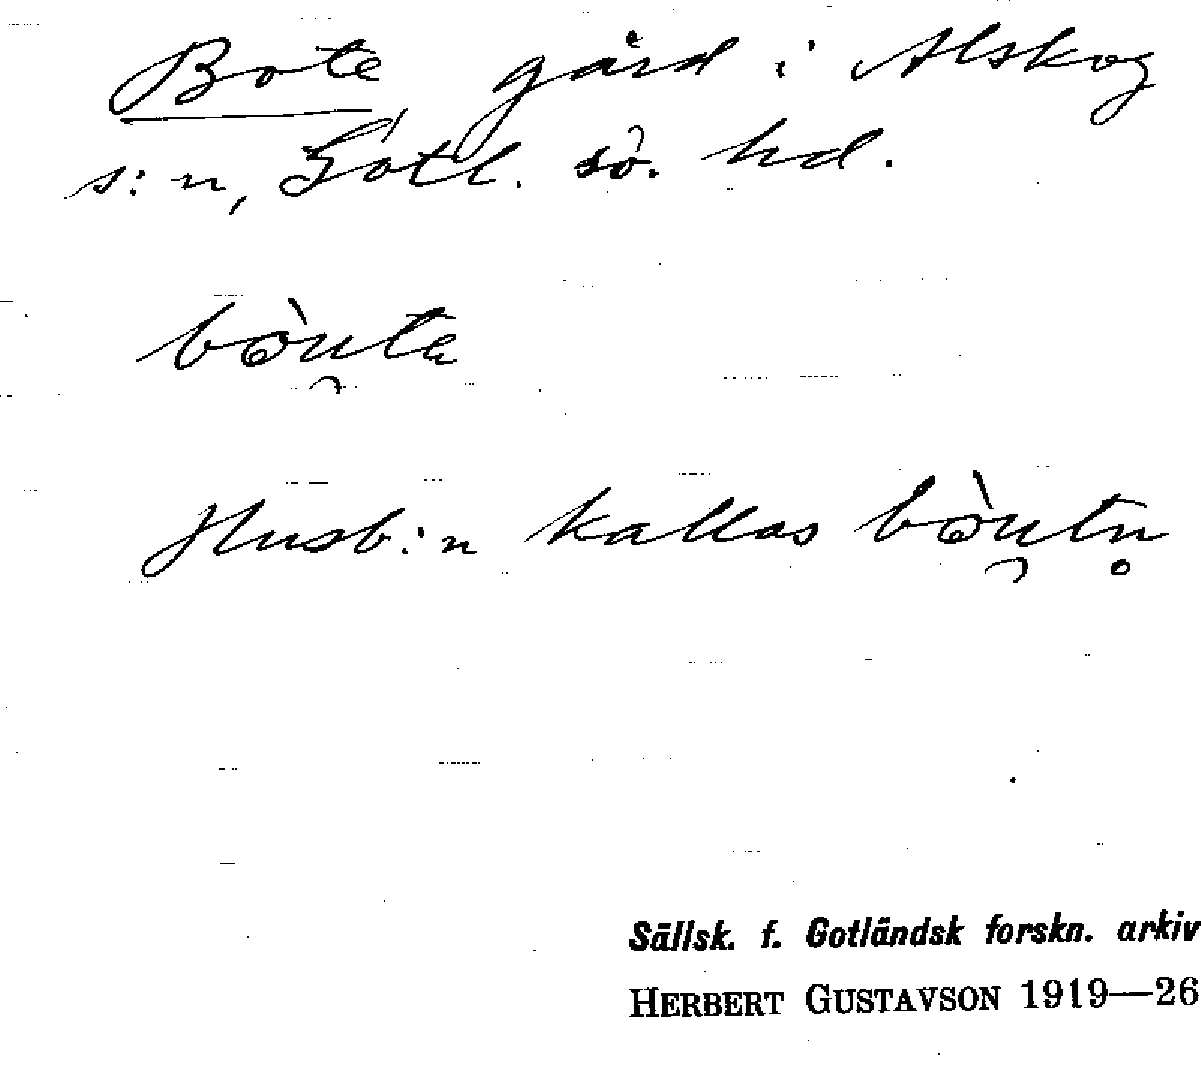 Bote gård i Alskog
s:n, Gotl. sö. hd.
bòu̯ta
Husb:n kallas bòu̯tn̥
Sällsk. f. Gotländsk forskn. arkiv
HERBERT GUSTAVSON 1919—26